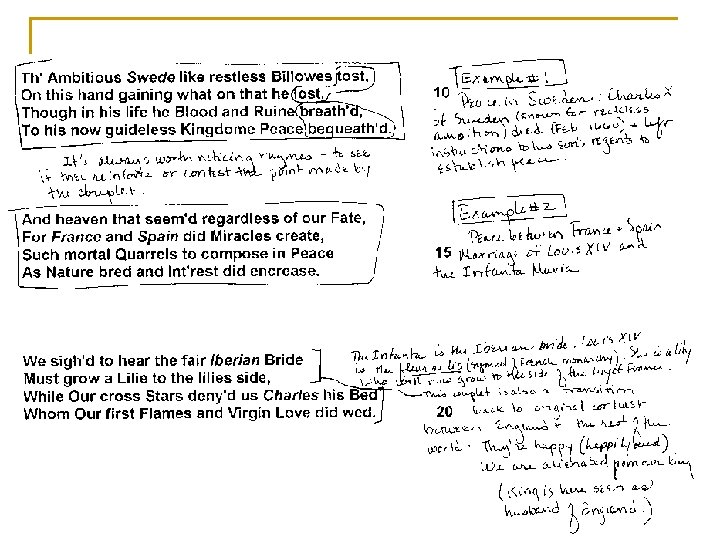 Th' Ambitious Swede like restless Billowes tost,
On this hand gaining what on that he lost,
Though in his life he Blood and Ruine breath'd,
To his now guideless Kingdome Peace bequeath'd.
Example #1
10 Peace in Sweden: Charles X
of Sweden (known for reckless
ambition) died (Feb 1660) & left
instructions to his son's regents to
establish peace.
It's always worth noticing rhymes - to see
if they reinforce or contest the point made by
the couplet.
And heaven that seem'd regardless of our Fate,
For France and Spain did Miracles create,
Such mortal Quarrels to compose in Peace
As Nature bred and Int'rest did encrease.
Example #2
Peace between France & Spain
15 Marriage of Louis XIV and
the Infanta Maria
We sigh'd to hear the fair Iberian Bride
Must grow a Lilie to the lilies side,
While Our cross Stars deny'd us Charles his Bed
Whom Our first Flames and Virgin Love did wed.
The Infanta is the Iberian bride. Louis XIV
is the fleur de lis (symbol of French monarchy). She is a lily
who will now grow to the side of the king of France.
This couplet is also a transition
20 back to original contrast
between England & the rest of the
world. They're happy
We are alienated from our king
(King is here seen as
husband of England.)